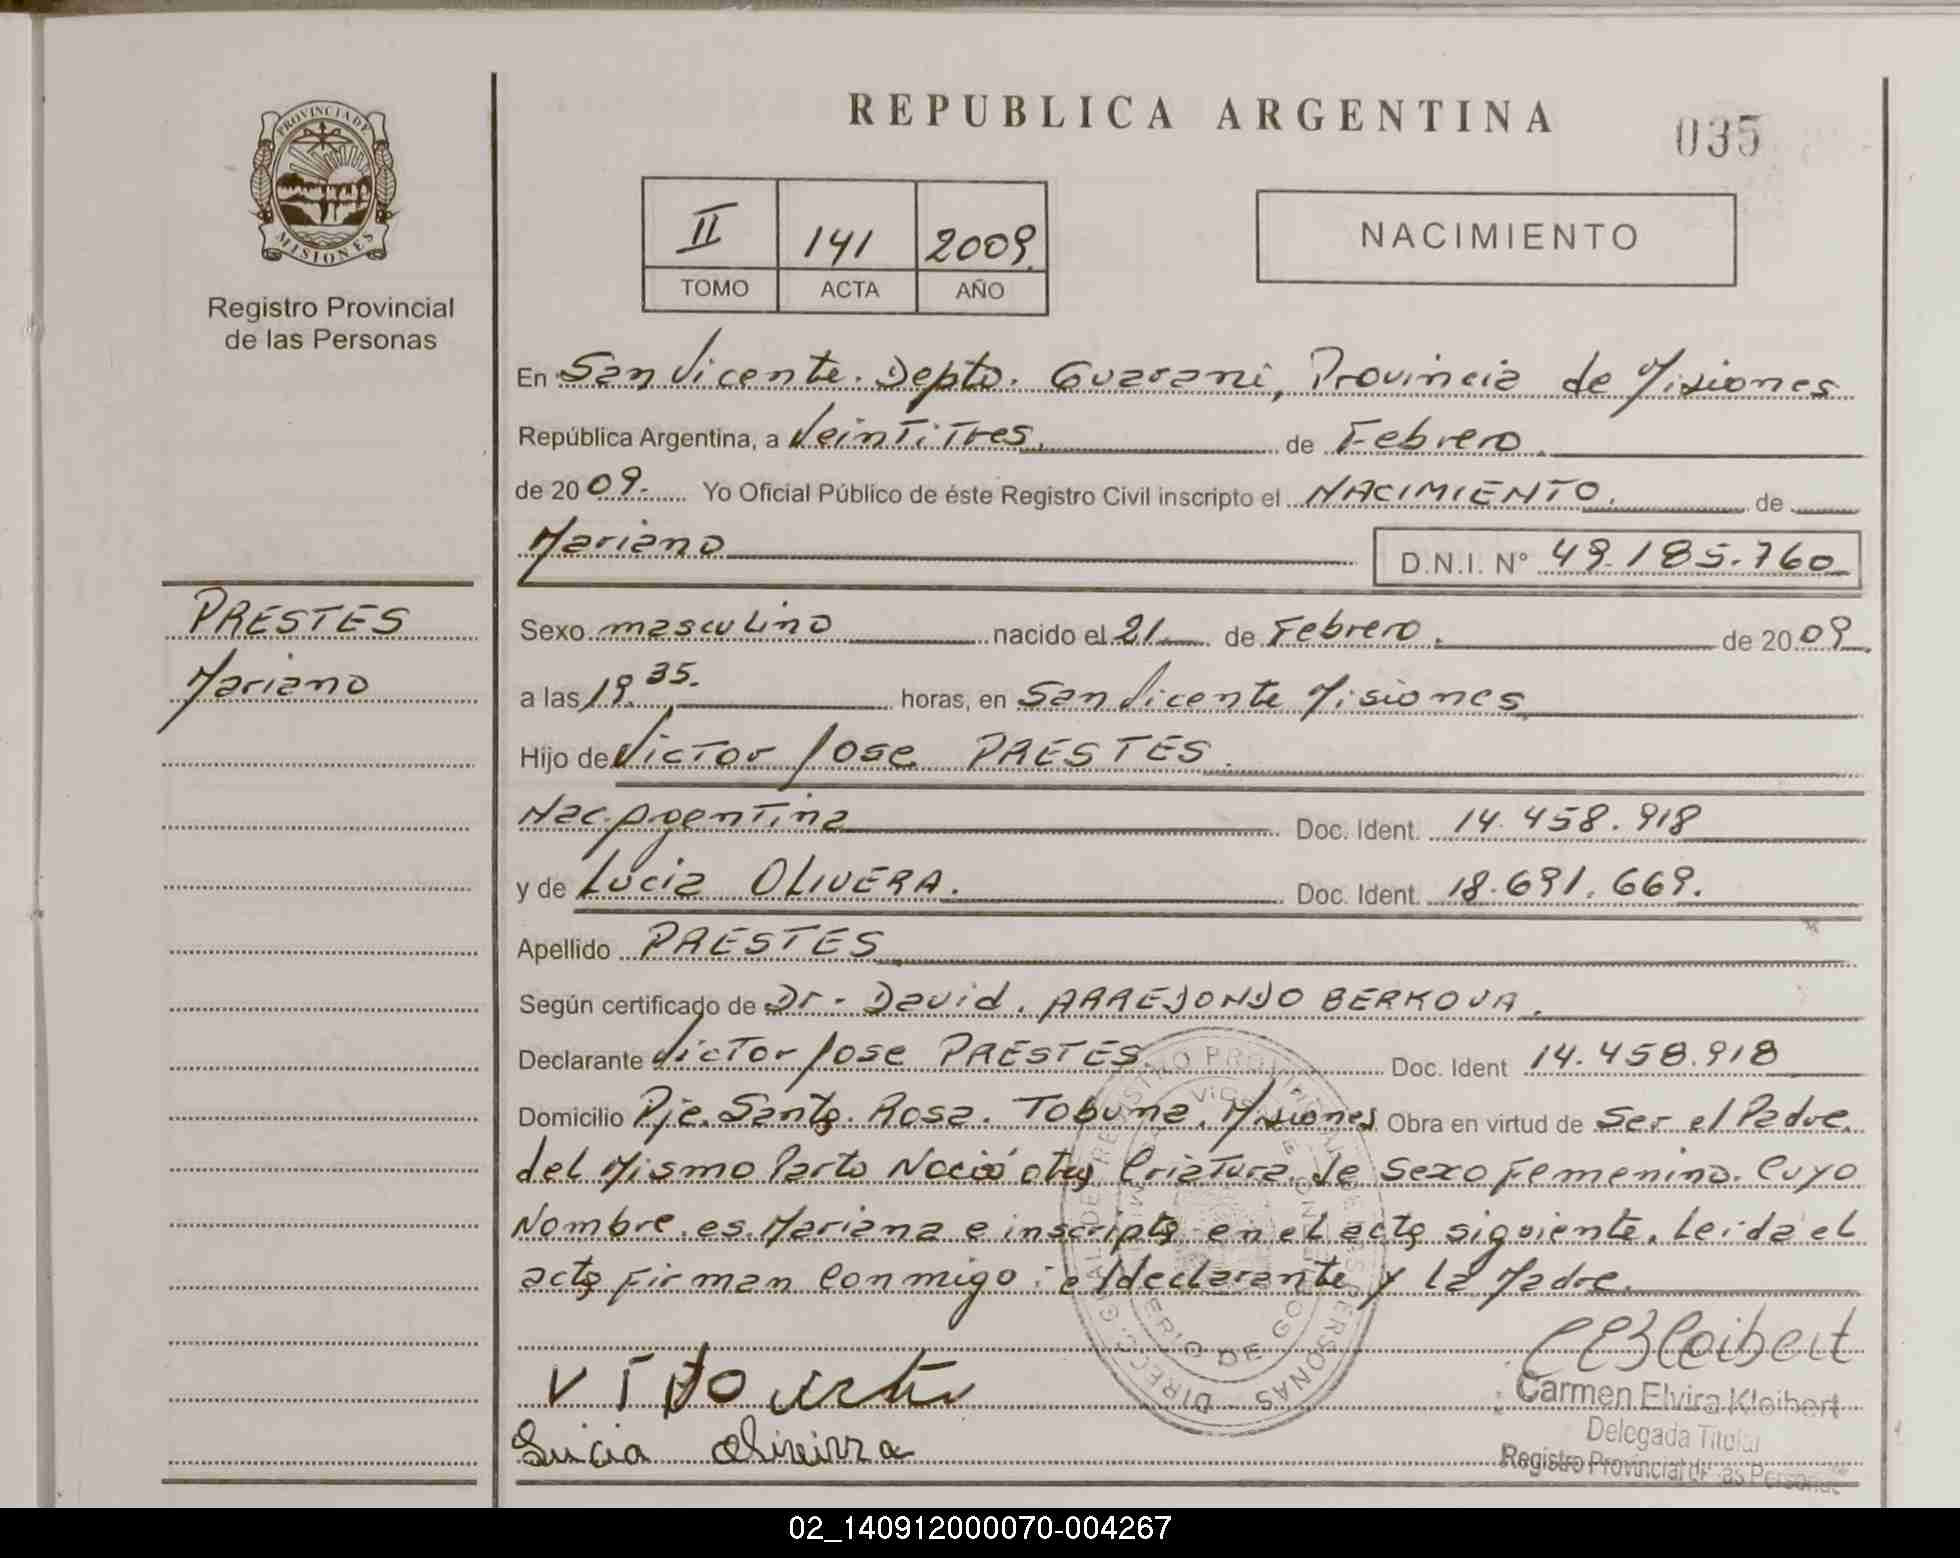 REPUBLICA ARGENTINA
035
PROVINCIA DE
MISIONES
Registro Provincial
de las Personas
II 141 2009
TOMO ACTA AÑO
NACIMIENTO
En San Vicente. Depto. Guarani, Provincia de Misiones
República Argentina, a Veintitres. de Febrero
de 2009. Yo Oficial Público de éste Registro Civil inscripto el NACIMIENTO. de
Mariano D.N.I. N° 49.185.760
PRESTES
Mariano
Sexo masculino nacido el 21 de Febrero. de 2009.
a las 19.35. horas, en San Vicente Misiones
Hijo de Victor Jose PRESTES.
Nac. Argentina Doc. Ident. 14.458.918
y de Lucia OLIVERA. Doc. Ident. 18.691.669.
Apellido PRESTES
Según certificado de Dr. David. ARREDONDO BERKOVA.
Declarante Victor Jose PRESTES Doc. Ident 14.458.918
Domicilio Pje. Santa. Rosa. Tobuna. Misiones Obra en virtud de Ser el Padre.
del Mismo Parto Nació otra Criatura de Sexo Femenino. Cuyo
Nombre. es. Mariana e inscripta en el acta siguiente. Leida el
acta Firman Conmigo: el declarante y la Madre.
Lucia Oliveira
Carmen Elvira Kleibert
Delegada Titular
Registro Provincial de las Personas
02_140912000070-004267